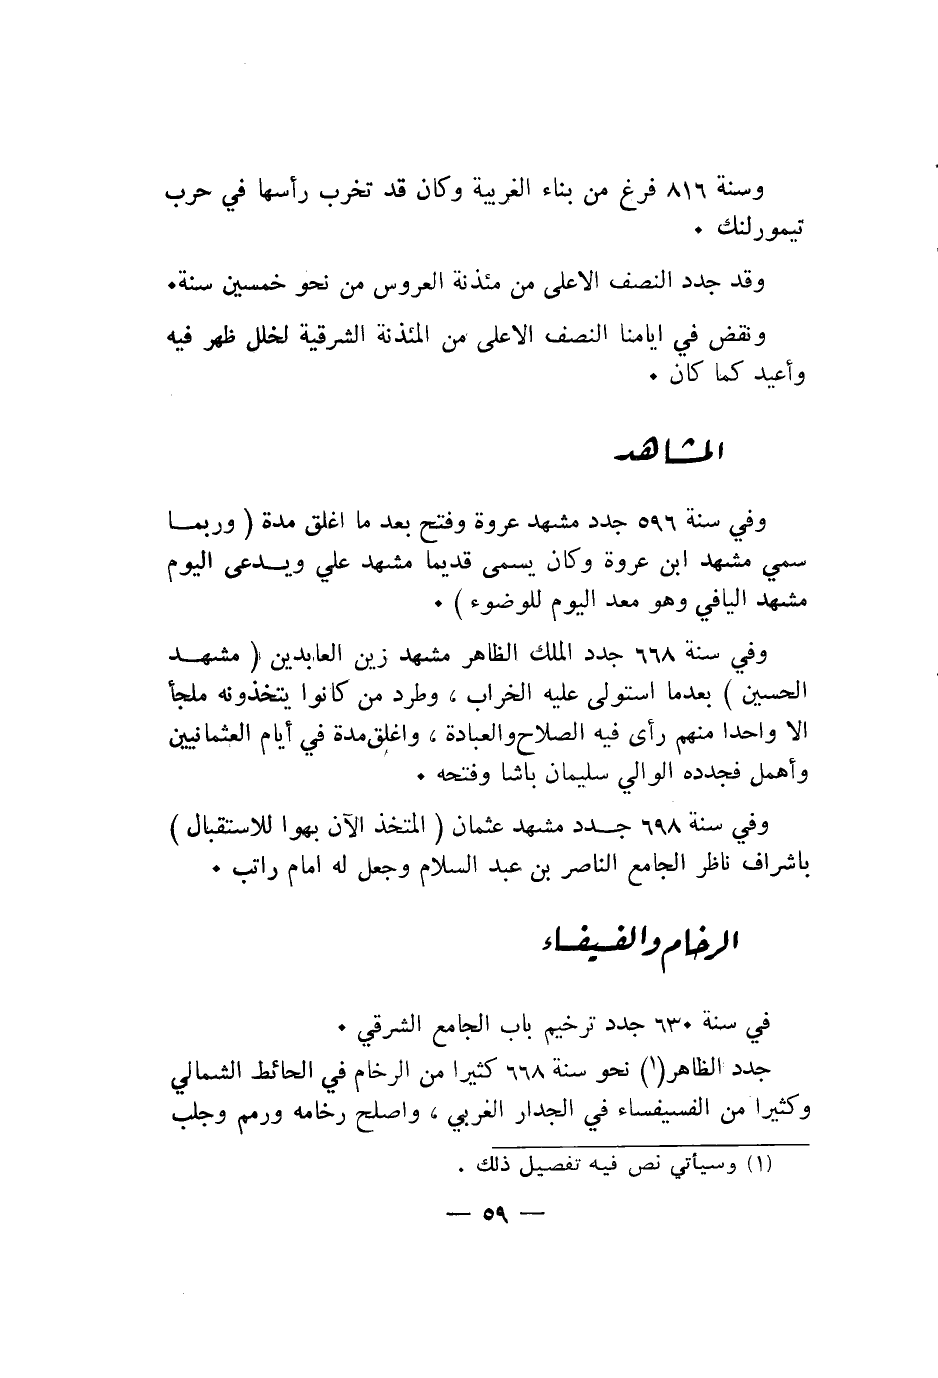 وسنة ٨١٦ فرغ من بناء الغربية وكان قد تخرب رأسها في حرب
تيمورلنك ٠
وقد جدد النصف الاعلى من مئذنة العروس من نحو خمسين سنة٠
ونقض في ايامنا النصف الاعلى من المئذنة الشرقية لخلل ظهر فيه
وأعيد كما كان ٠
المشاهد
وفي سنة ٥٩٦ جدد مشهد عروة وفتح بعد ما اغلق مدة ( وربمـا
سمي مشهد ابن عروة وكان يسمى قديما مشهد علي ويـدعى اليوم
مشهد اليافي وهو معد اليوم للوضوء ) ٠
وفي سنة ٦٦٨ جدد الملك الظاهر مشهد زين العابدين ( مشهـد
الحسين ) بعدما استولى عليه الخراب ، وطرد من كانوا يتخذونه ملجأ
الا واحدا منهم رأى فيه الصلاح والعبادة ، واغلق مدة في أيام العثمانيين
وأهمل فجدده الوالي سليمان باشا وفتحه ٠
وفي سنة ٦٩٨ جـدد مشهد عثمان ( المتخذ الآن بهوا للاستقبال )
باشراف ناظر الجامع الناصر بن عبد السلام وجعل له امام راتب ٠
الرخام والفسيفساء
في سنة ٦٣٠ جدد ترخيم باب الجامع الشرقي ٠
جدد الظاهر(١) نحو سنة ٦٦٨ كثيرا من الرخام في الحائط الشمالي
وكثيرا من الفسيفساء في الجدار الغربي ، واصلح رخامه ورمم وجلب
(١) وسيأتي نص فيه تفصيل ذلك .
— ٥٩ —